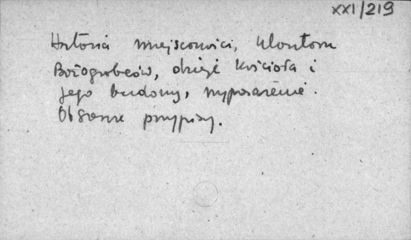 XXI/219
Historia miejscowości, klasztoru
Bożogrobców, dzieje kościoła i
jego budowy, wyposażenie.
Obszerne przypisy.